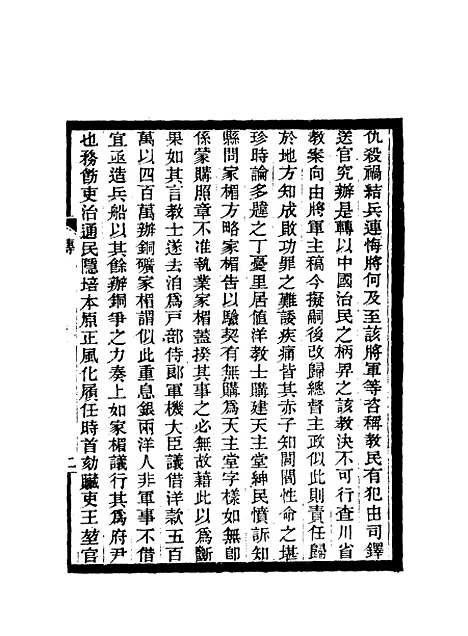 仇殺禍結兵連悔將何及至該將軍等咨稱教民有犯由司鐸
送官究辦是轉以中國治民之柄畀之該教決不可行查川省
教案向由將軍主稿今擬嗣後改歸總督主政似此則責任歸
於地方知成敗功罪之難諉疾痛皆其赤子知閭閻性命之堪
珍時論多韙之丁憂里居值洋教士購建天主堂紳民憤訴知
縣問家楣方略家楣告以驗契有無購為天主堂字樣如無卽
係蒙購照章不准執業家楣蓋揆其事之必無故藉此以為斷
果如其言教士遂去洎為戶部侍郞軍機大臣議借洋款五百
萬以四百萬辦銅礦家楣謂似此重息銀兩洋人非軍事不借
宜亟造兵船以其餘辦銅爭之力奏上如家楣議行其為府尹
也務飭吏治通民隱培本原正風化履任時首劾贓吏王堃官
傳
二